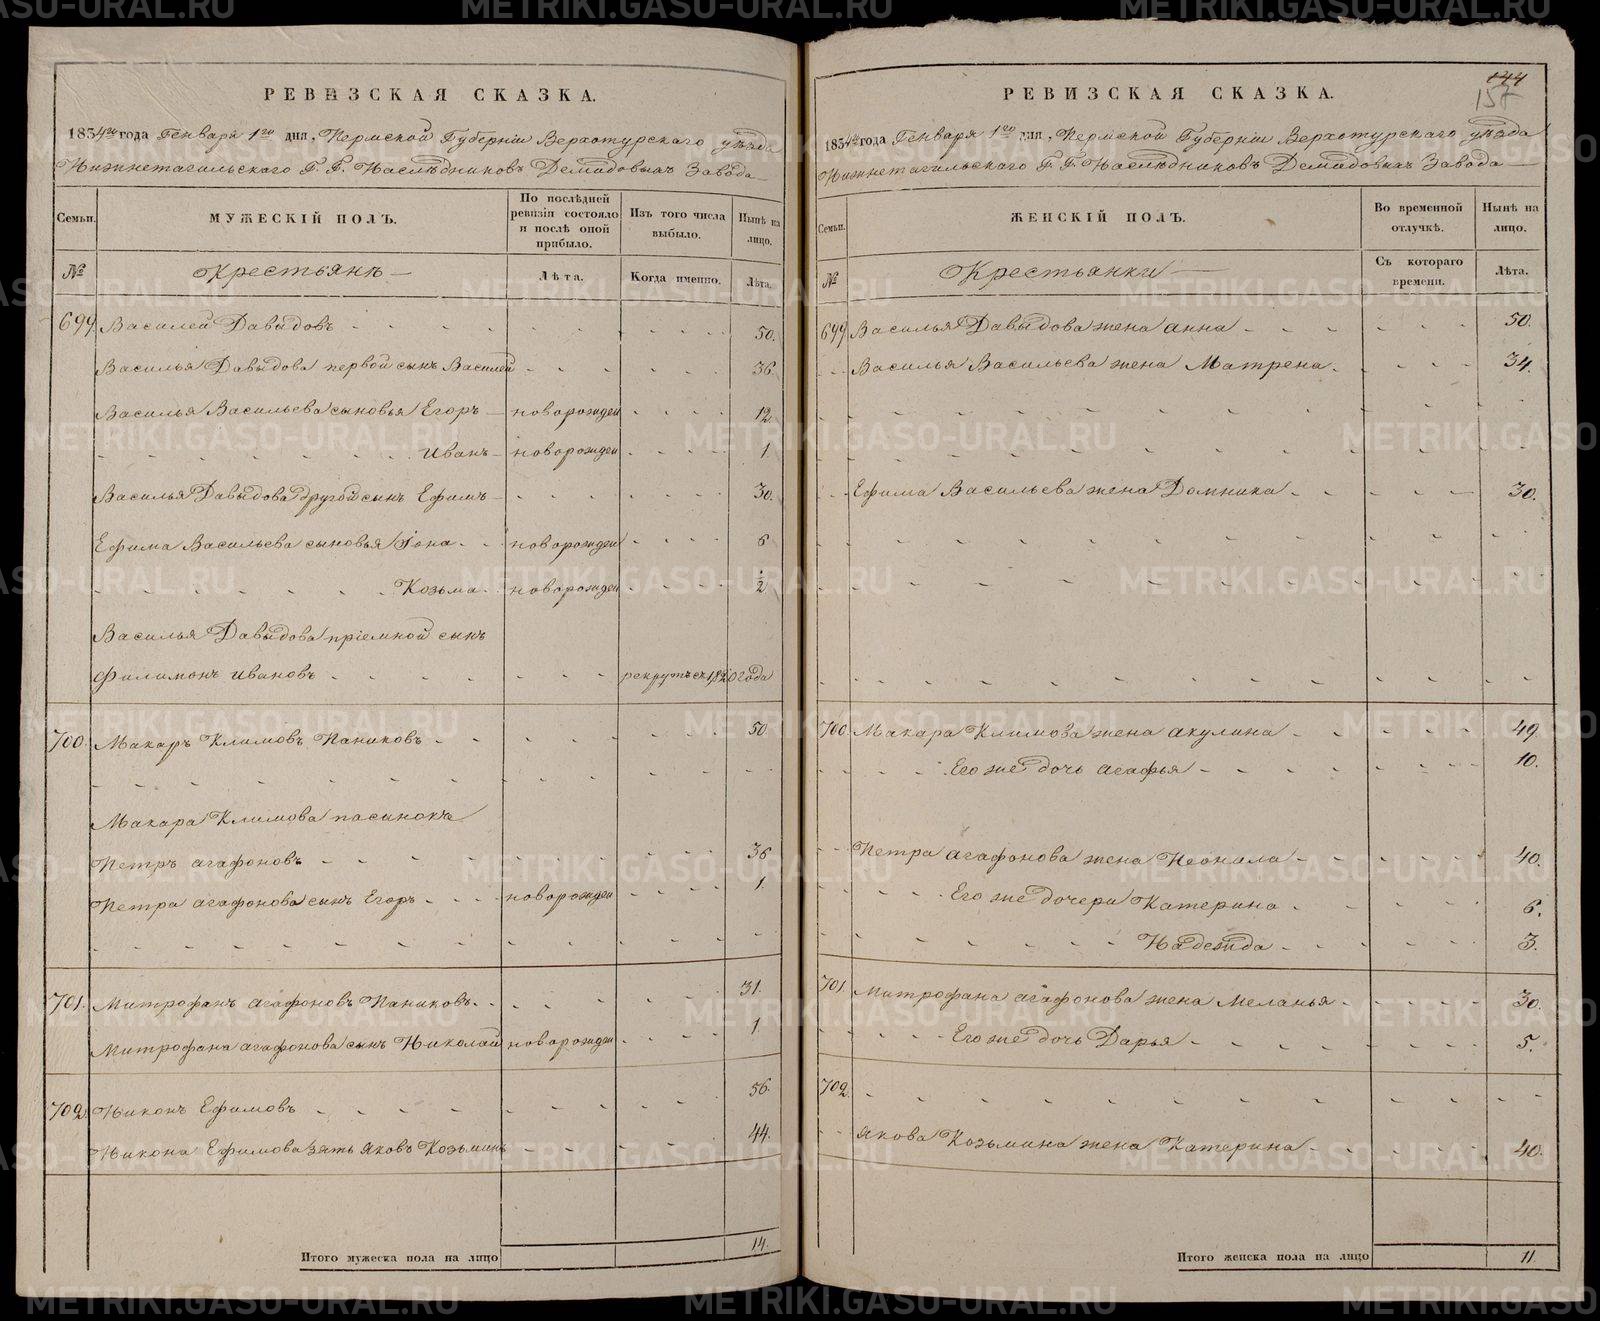 РЕВИЗСКАЯ СКАЗКА.
1834го года Генваря 1го дня, Пермской Губернiи Верхотурскаго уѣзда
Нижнетагильскаго Г. Г. Наслѣдниковъ Демидовыхъ Завода
Семьи. МУЖЕСКIЙ ПОЛЪ. По послѣдней ревизiи состояло и послѣ оной прибыло. Изъ того числа выбыло. Нынѣ на лицо.
№ Крестьянѣ Лѣта. Когда именно. Лѣта.
699 Василей Давыдовъ 50.
Василья Давыдова первой сынъ Василей 36
Василья Васильева сыновья Егоръ новорожден 12
Иванъ новорожден 1
Василья Давыдова другой сынъ Ефимъ 30.
Ефима Васильева сыновья Iона новорожден 6
Козьма новорожден ½
Василья Давыдова прiемной сынъ
Филимонъ Ивановъ рекрутъ съ 1820 года
700. Макаръ Климовъ Паниковъ 50.
Макара Климова пасынокъ
Петръ Агафоновъ 36
Петра Агафонова сынъ Егоръ новорожден 1.
701. Митрофанъ Агафоновъ Паниковъ. 31.
Митрофана Агафонова сынъ Николай новорожден 1
702 Никонъ Ефимовъ 56.
Никона Ефимова зять Яковъ Козьминъ 44.
Итого мужеска пола на лицо 14.
144
157
РЕВИЗСКАЯ СКАЗКА.
1834го года Генваря 1го дня, Пермской Губернiи Верхотурскаго уѣзда
Нижнетагильскаго Г. Г. Наслѣдниковъ Демидовыхъ Завода
Семьи. ЖЕНСКIЙ ПОЛЪ. Во временной отлучкѣ. Нынѣ на лицо.
№ Крестьянки Съ котораго времени. Лѣта.
699 Василья Давыдова жена Анна 50.
Василья Васильева жена Матрена 34.
Ефима Васильева жена Домника 30.
700 Макара Климова жена Акулина 49.
Его же дочь Агафья 10.
Петра Агафонова жена Неонила 40.
Его же дочери Катерина 6.
Надежда 3.
701 Митрофана Агафонова жена Меланья 30.
Его же дочь Дарья 5.
702.
Якова Козьмина жена Катерина 40.
Итого женска пола на лицо 11
METRIKI.GASO-URAL.RU